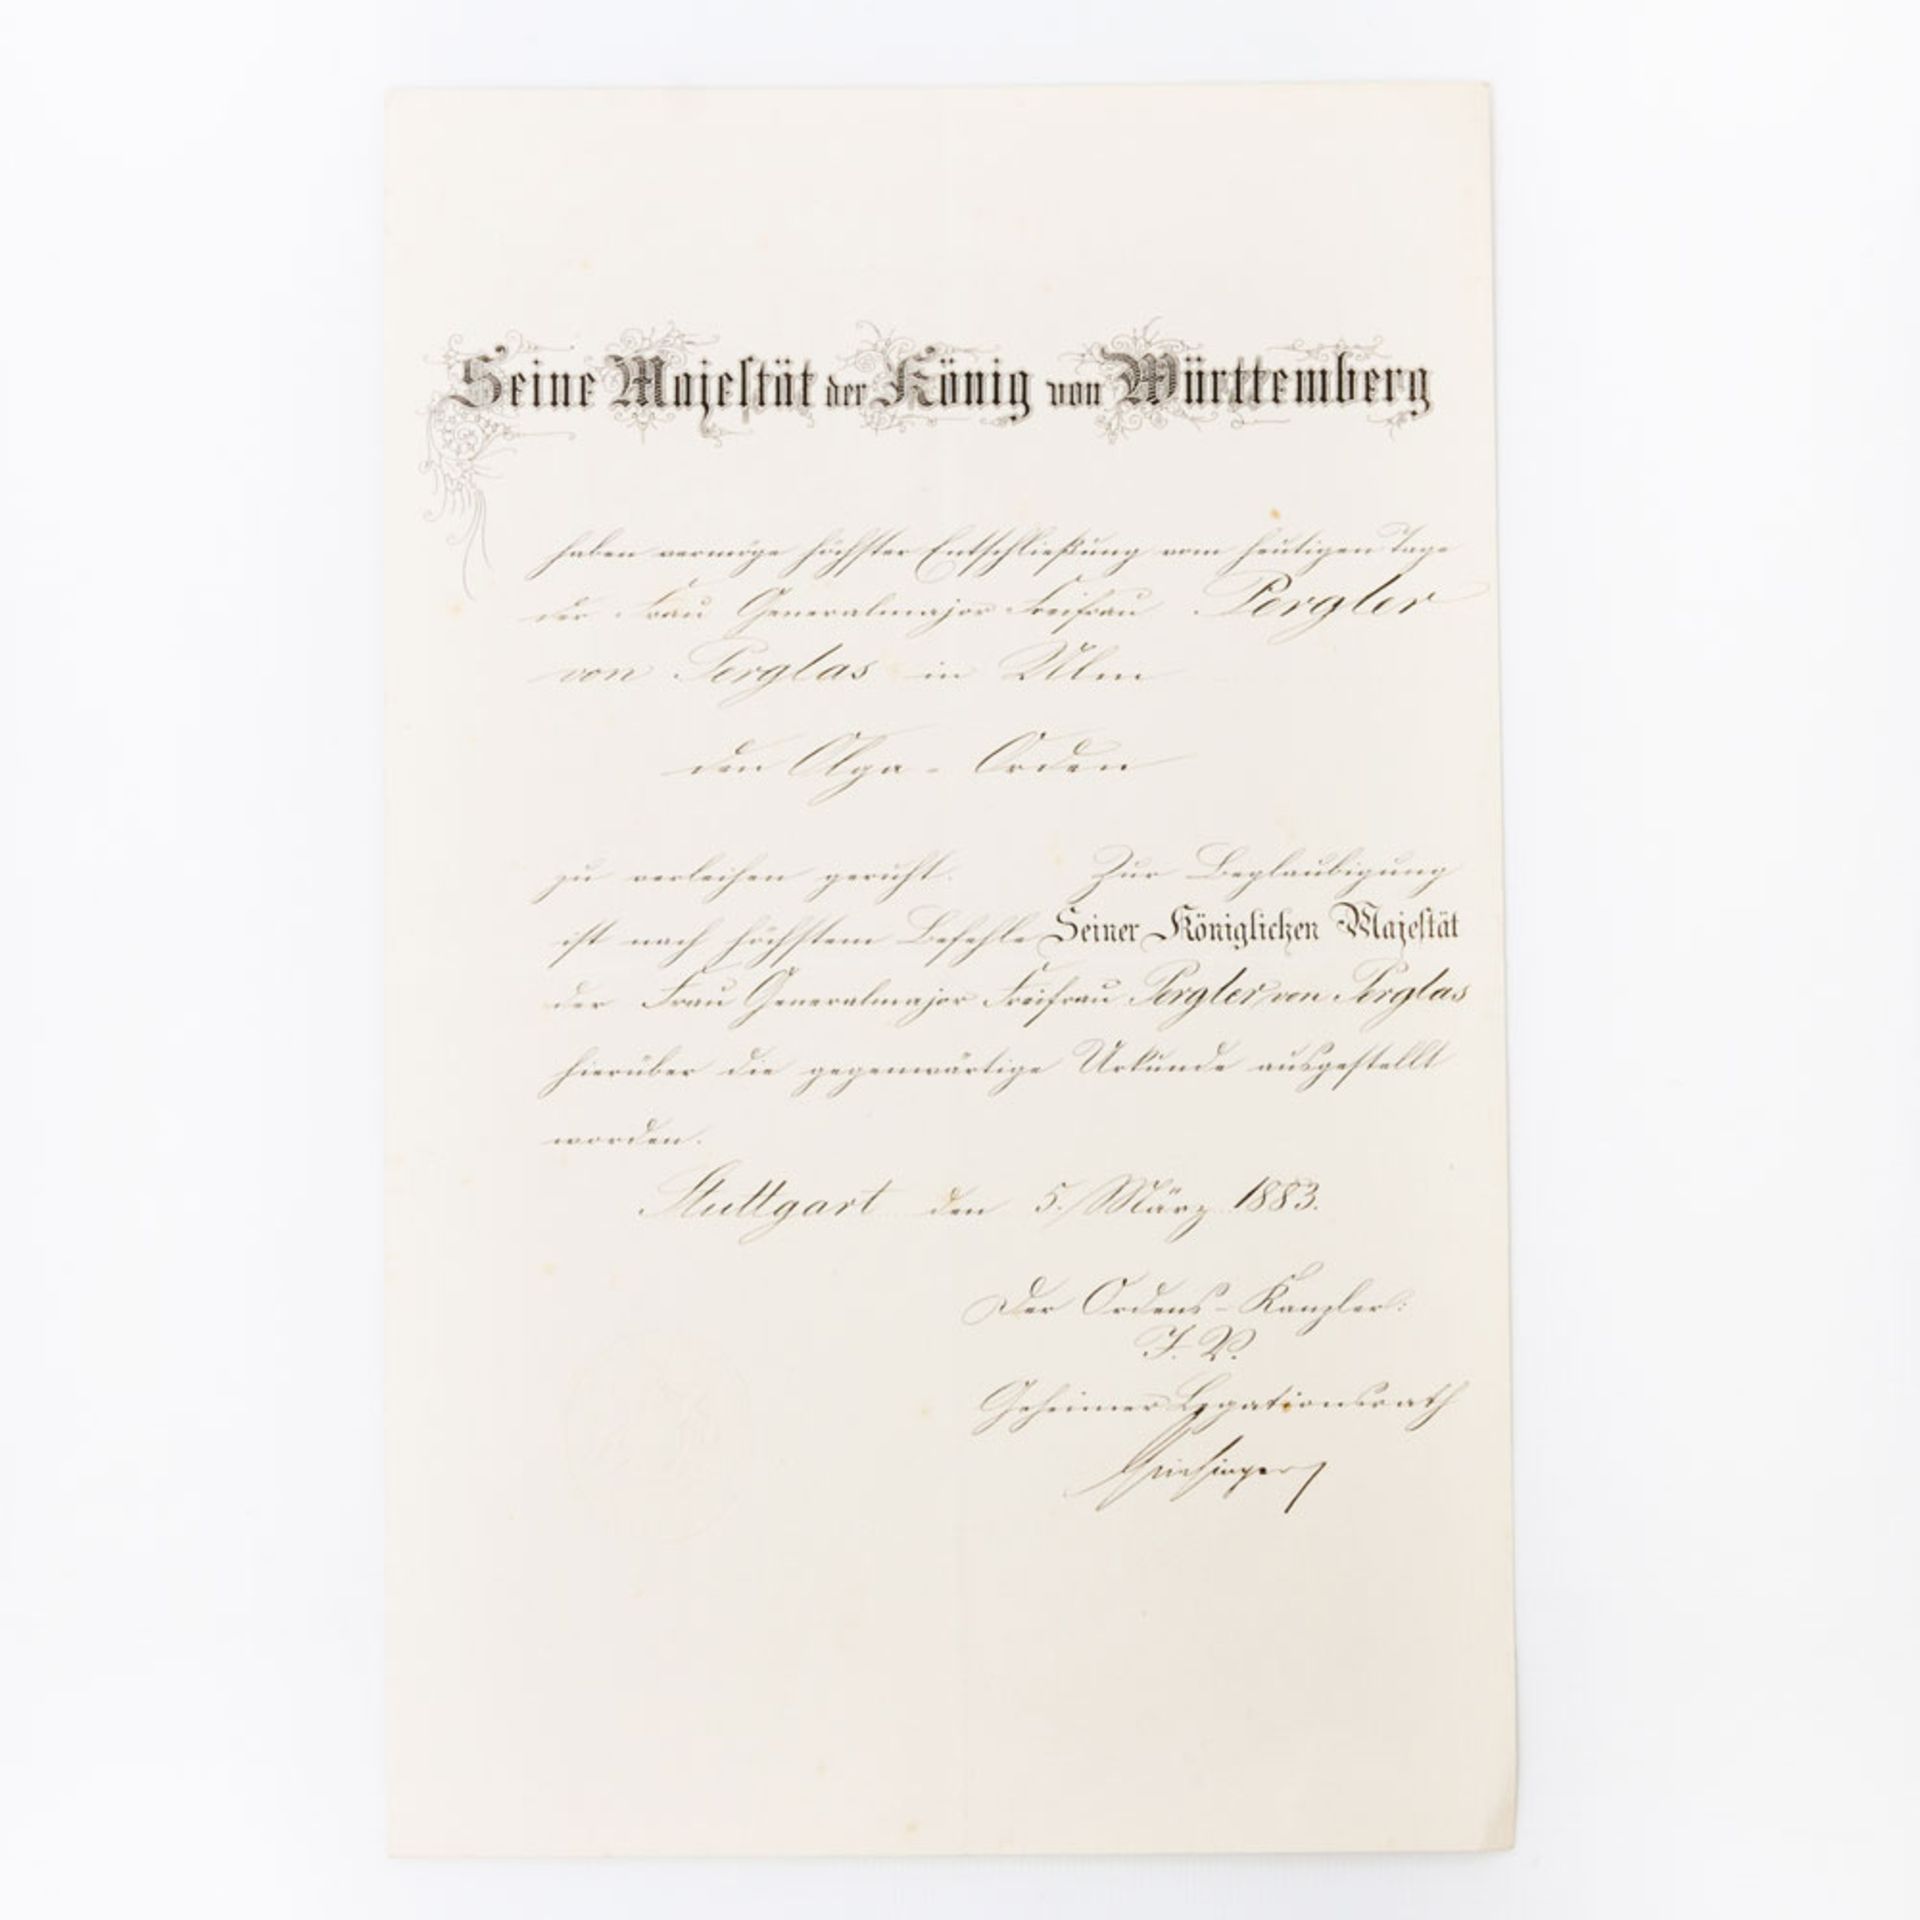 Seine Majestät der König von Württemberg
haben vermöge höchster Entschließung vom heutigen Tage
der Frau Generalmajor Freifrau Pergler
von Perglas in Ulm
den Olga-Orden
zu verleihen geruht. Zur Beglaubigung
ist nach höchstem Befehle Seiner Königlichen Majestät
der Frau Generalmajor Freifrau Pergler von Perglas
hierüber die gegenwärtige Urkunde ausgestellt
worden.
Stuttgart den 5. März 1883.
Der Ordens-Kanzler:
I. V.
Geheimer Legationsrath
Griesinger